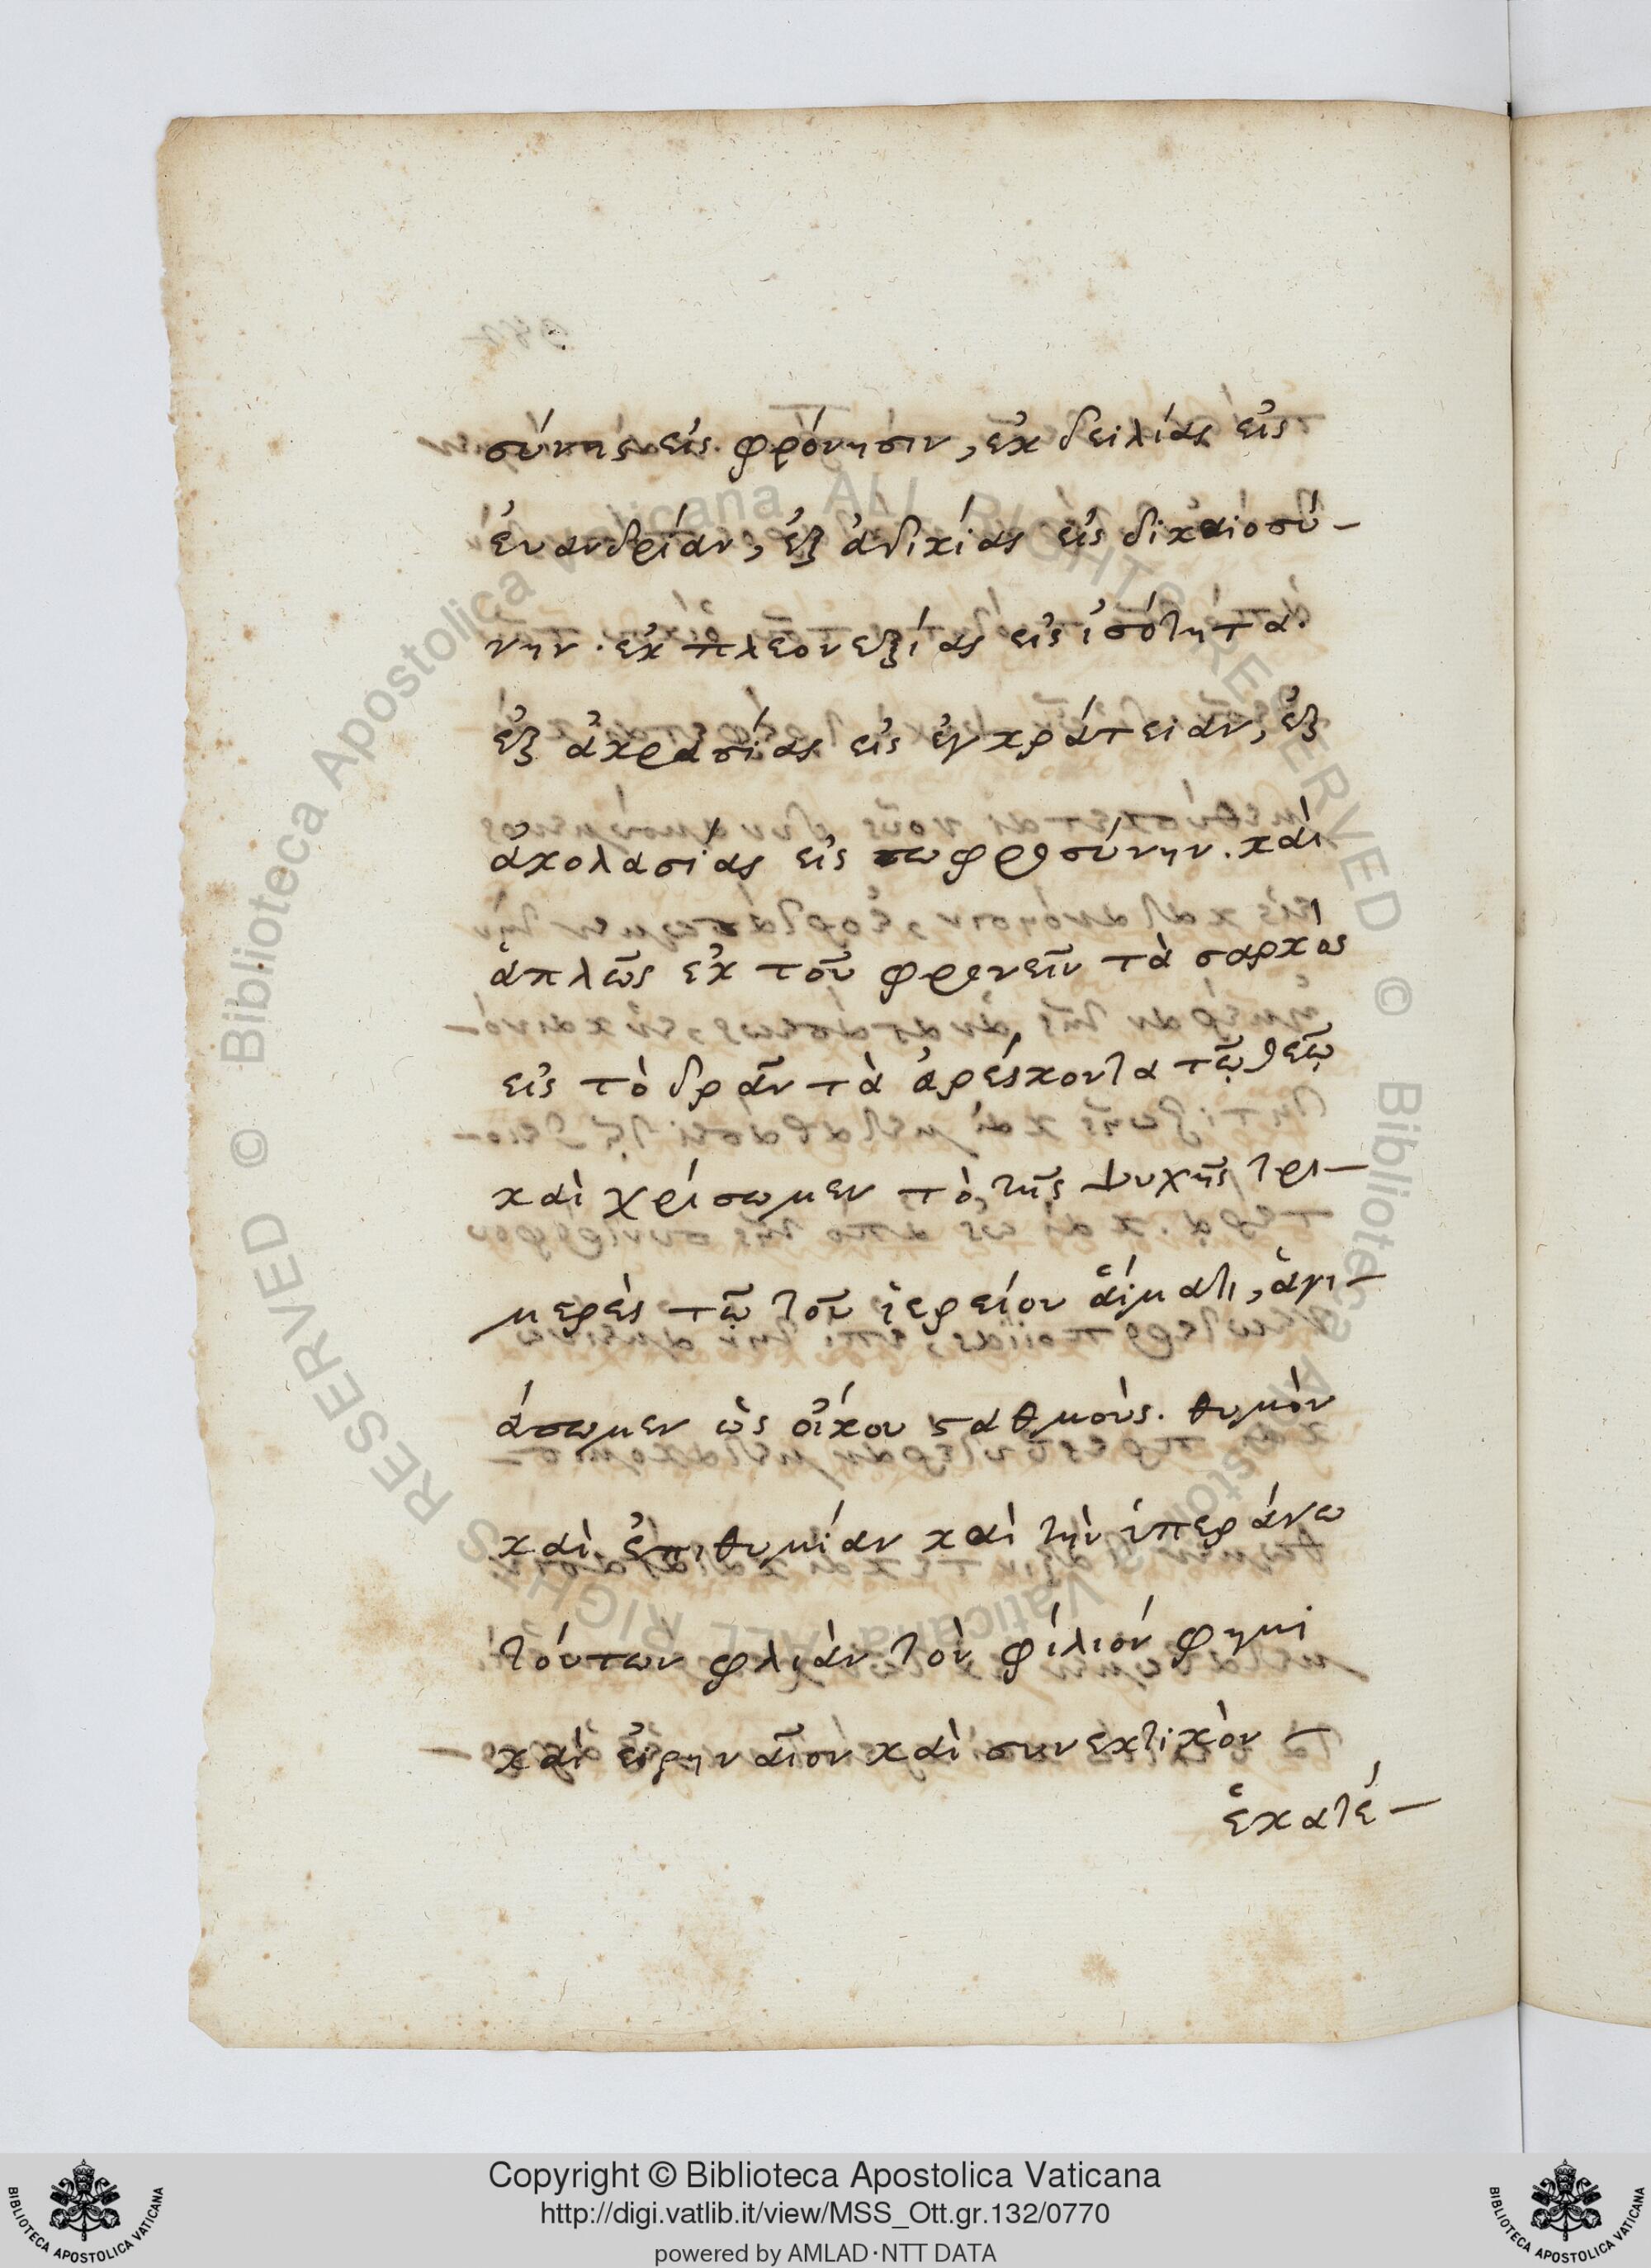 σύνης εἰς φρόνησιν, ἐκ δειλίας εἰς
ἐυανδρίαν, ἐξ ἀδικίας εἰς δικαιοσύ-
νην. ἐκ πλεονεξίας εἰς ἰσότητα.
ἐξ ἀκρασίας εἰς ἐγκράτειαν, ἐξ
ἀκολασίας εἰς σωφροσύνην. καὶ
ἁπλῶς ἐκ τοῦ φρονεῖν τὰ σαρκὸς
εἰς τὸ δρᾶν τὰ ἀρέσκοντα τῷ θεῷ
καὶ χρίσωμεν τὸ τῆς ψυχῆς τρι-
μερὲς τῷ τοῦ ἱερείου αἵματι, ἁγι-
άσωμεν ὡς οἴκου σταθμοὺς. θυμὸν
καὶ ἐπιθυμίαν καὶ τὴν ὑπεράνω
τούτων φλιὰν τὸν φίλιόν φημι
καὶ εἰρηναῖον καὶ συνεκτικὸν
ἑκατέ-
Copyright © Biblioteca Apostolica Vaticana
http://digi.vatlib.it/view/MSS_Ott.gr.132/0770
powered by AMLAD·NTT DATA
BIBLIOTECA APOSTOLICA VATICANA
BIBLIOTECA APOSTOLICA VATICANA
© Biblioteca Apostolica Vaticana ALL RIGHTS RESERVED
© Biblioteca Apostolica Vaticana ALL RIGHTS RESERVED